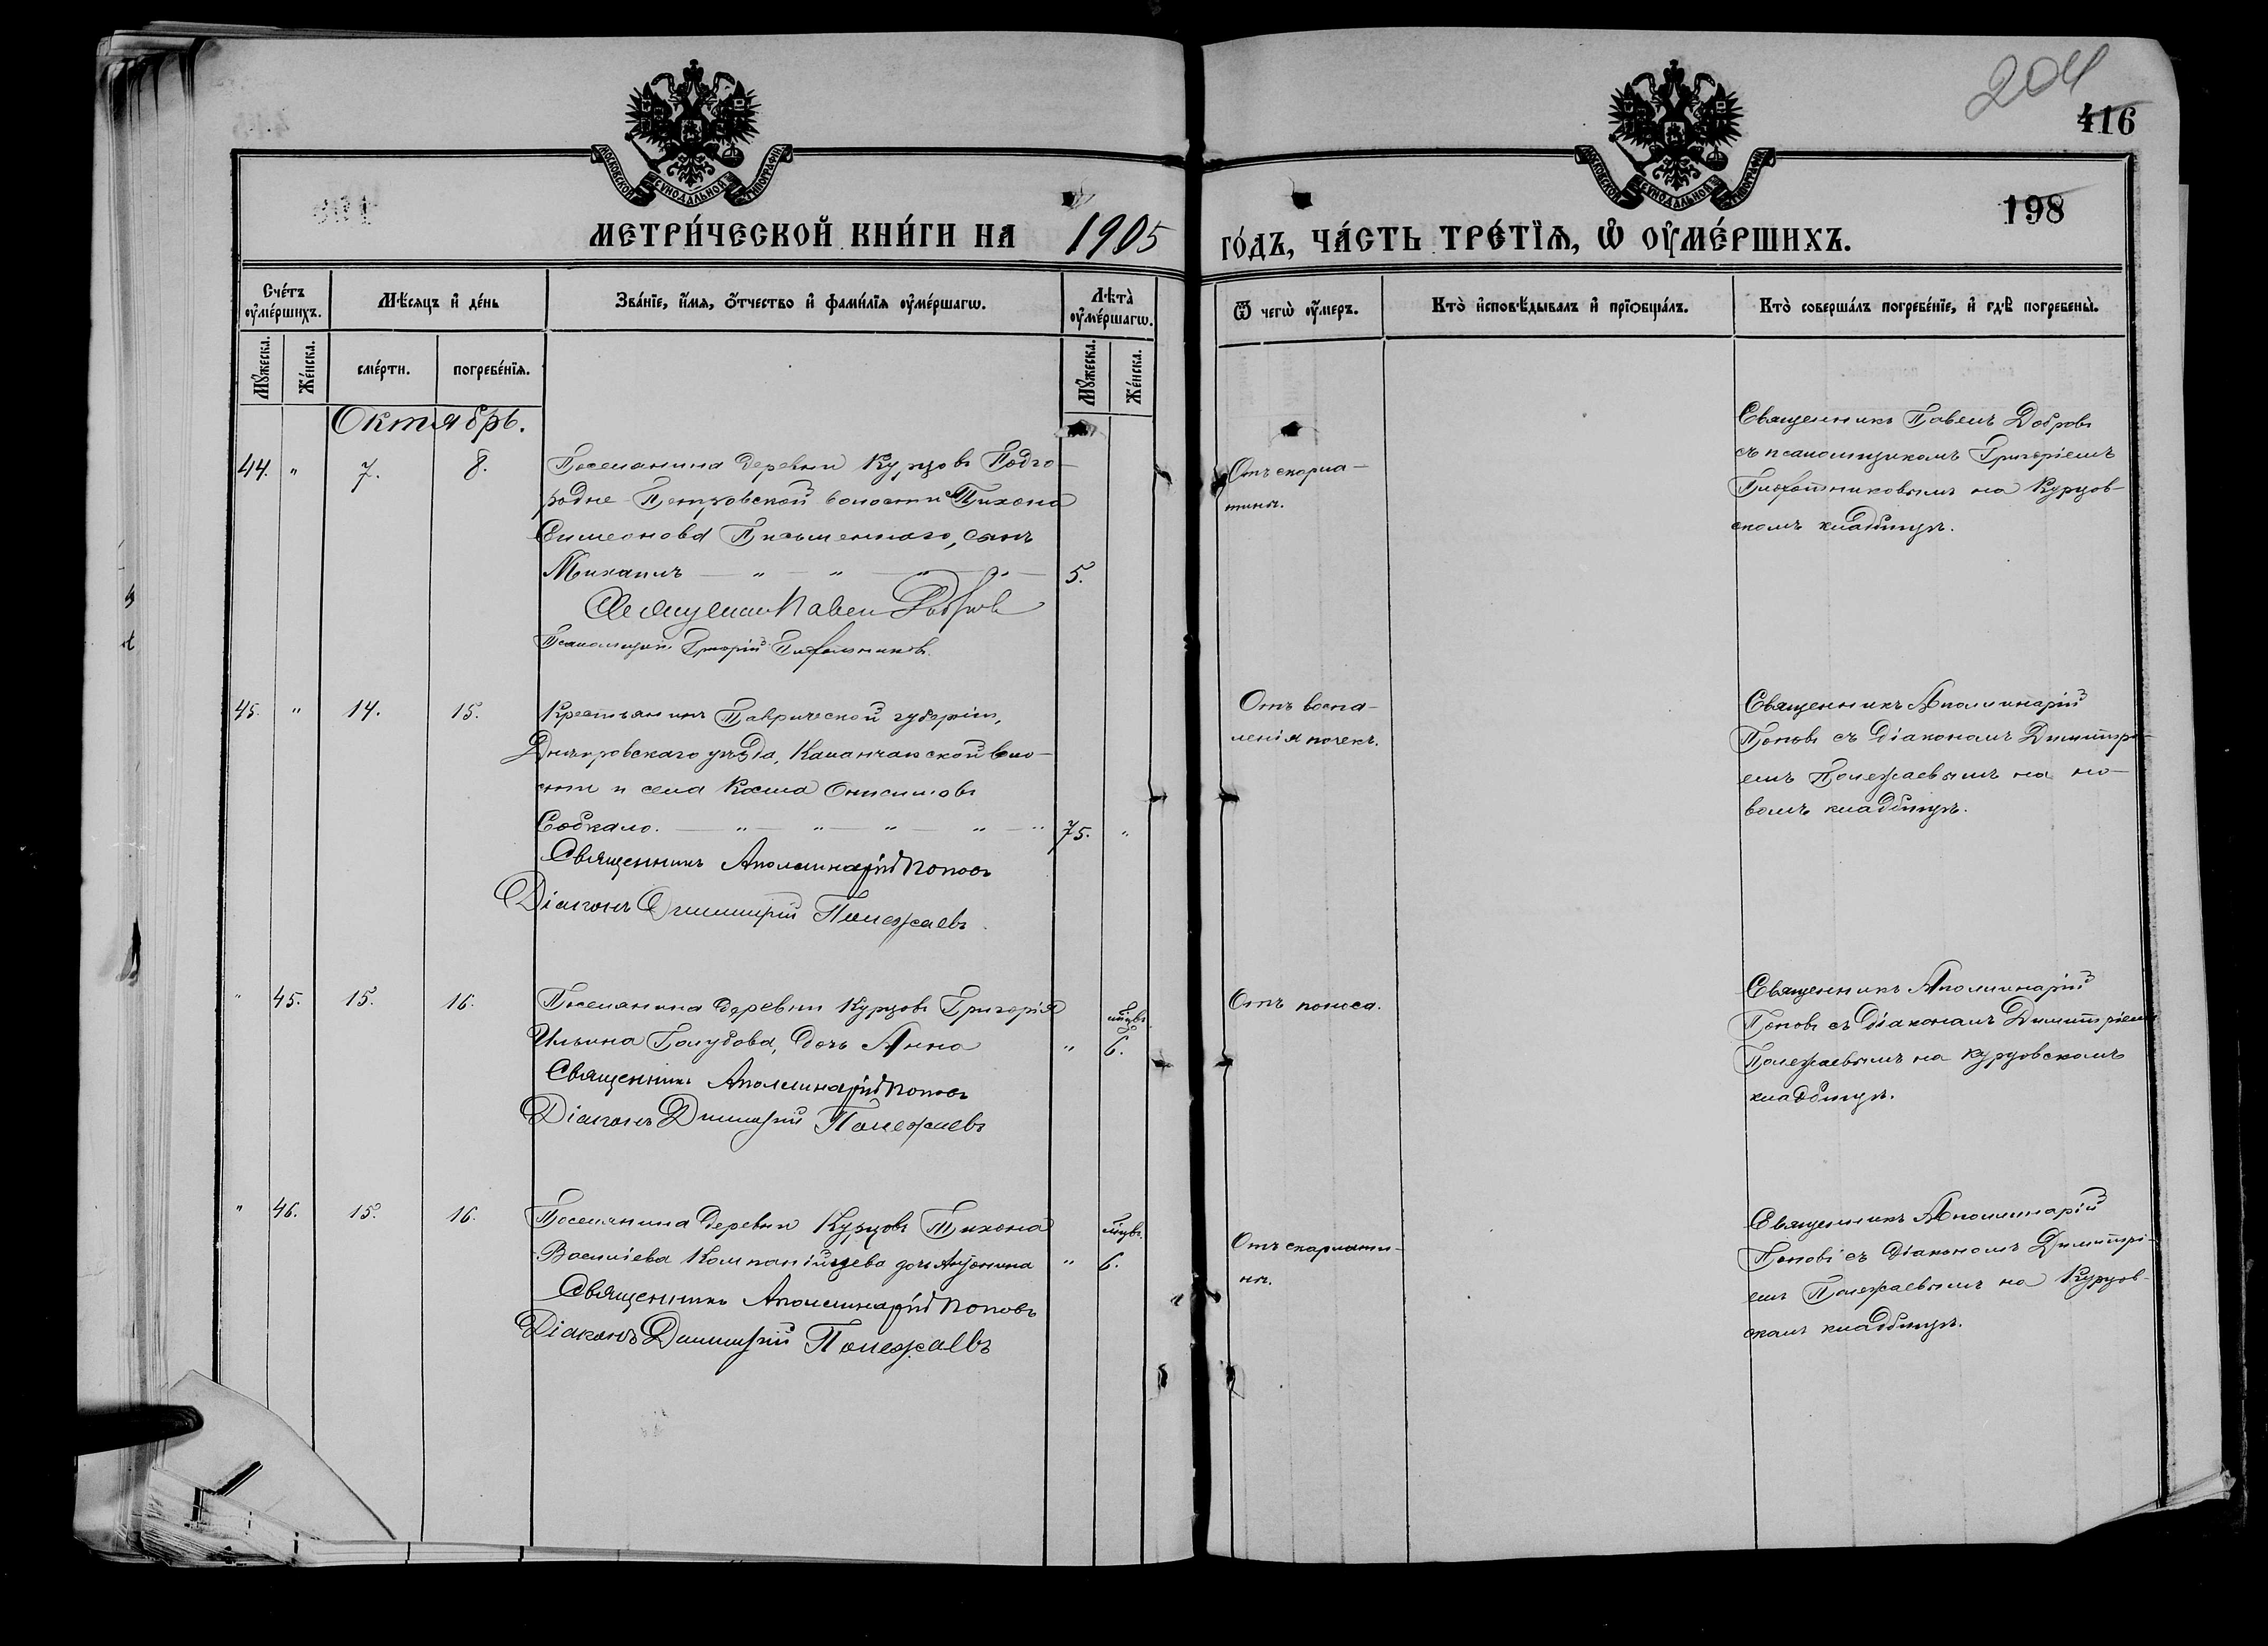 204
416
198
МОСКОВСКОЙ СУНОДАЛЬНОЙ ТИПОГРАФІИ
МОСКОВСКОЙ СУНОДАЛЬНОЙ ТИПОГРАФІИ
МЕТРИ́ЧЕСКОЙ КНИ́ГИ НА 1905 ГО́ДЪ, ЧА́СТЬ ТРЕ́ТЇѦ, Ѡ҆ ОУ҆МЕ́РШИХЪ.
Сче́тъ оу҆ме́ршихъ.
Мꙋ́жеска.
Же́нска.
Мѣ́сяцъ и҆ де́нь
сме́рти.
погребе́нїя.
Зва́нїе, и҆́мя, ѻ҆́тчество и҆ фами́лїя оу҆ме́ршагѡ.
Лѣта̀ оу҆ме́ршагѡ.
Мꙋ́жеска.
Же́нска.
Ѿ чегѡ̀ оу҆́меръ.
Кто̀ и҆сповѣ́дывалъ и҆ прїѻбща́лъ.
Кто̀ соверша́лъ погребе́нїе, и҆ гдѣ̀ погребены̀.
Октябрь.
44. " 7. 8.
Поселянина деревни Курцовъ Подго-
родне-Петровской волости Тихона
Симеонова Письменнаго, сынъ
Михаилъ — " — " — " — " — 5.
Священникъ Павелъ Добровъ
Псаломщикъ Григорій Плотниковъ.
Отъ скарла-
тины.
Священникъ Павелъ Добровъ
съ псаломщикомъ Григоріемъ
Плотниковымъ на Курцов-
скомъ кладбищѣ.
45. " 14. 15.
Крестьянинъ Таврической губерніи,
Днѣпровскаго уѣзда, Каланчакской воло-
сти и села Косма Онисимовъ
— " — " — " — " — " 75. "
Священникъ Аполлинарій Поповъ
Діаконъ Димитрій Полежаевъ.
Отъ воспа-
ленія почекъ.
Священникъ Аполлинарій
Поповъ съ діакономъ Димитрі-
емъ Полежаевымъ на но-
вомъ кладбищѣ.
" 45. 15. 16.
Поселянина деревни Курцовъ Григорія
Ильина Голубова, дочь Анна " мцвъ 6.
Священникъ Аполлинарій Поповъ
Діаконъ Димитрій Полежаевъ
Отъ поноса.
Священникъ Аполлинарій
Поповъ съ діакономъ Димитріемъ
Полежаевымъ на Курцовскомъ
кладбищѣ.
" 46. 15. 16.
Поселянина деревни Курцовъ Тихона
Василіева Компанійцева дочь Антонина " мцвъ 6.
Священникъ Аполлинарій Поповъ
Діаконъ Димитрій Полежаевъ
Отъ скарлати-
ны.
Священникъ Аполлинарій
Поповъ съ діакономъ Димитрі-
емъ Полежаевымъ на Курцов-
скомъ кладбищѣ.